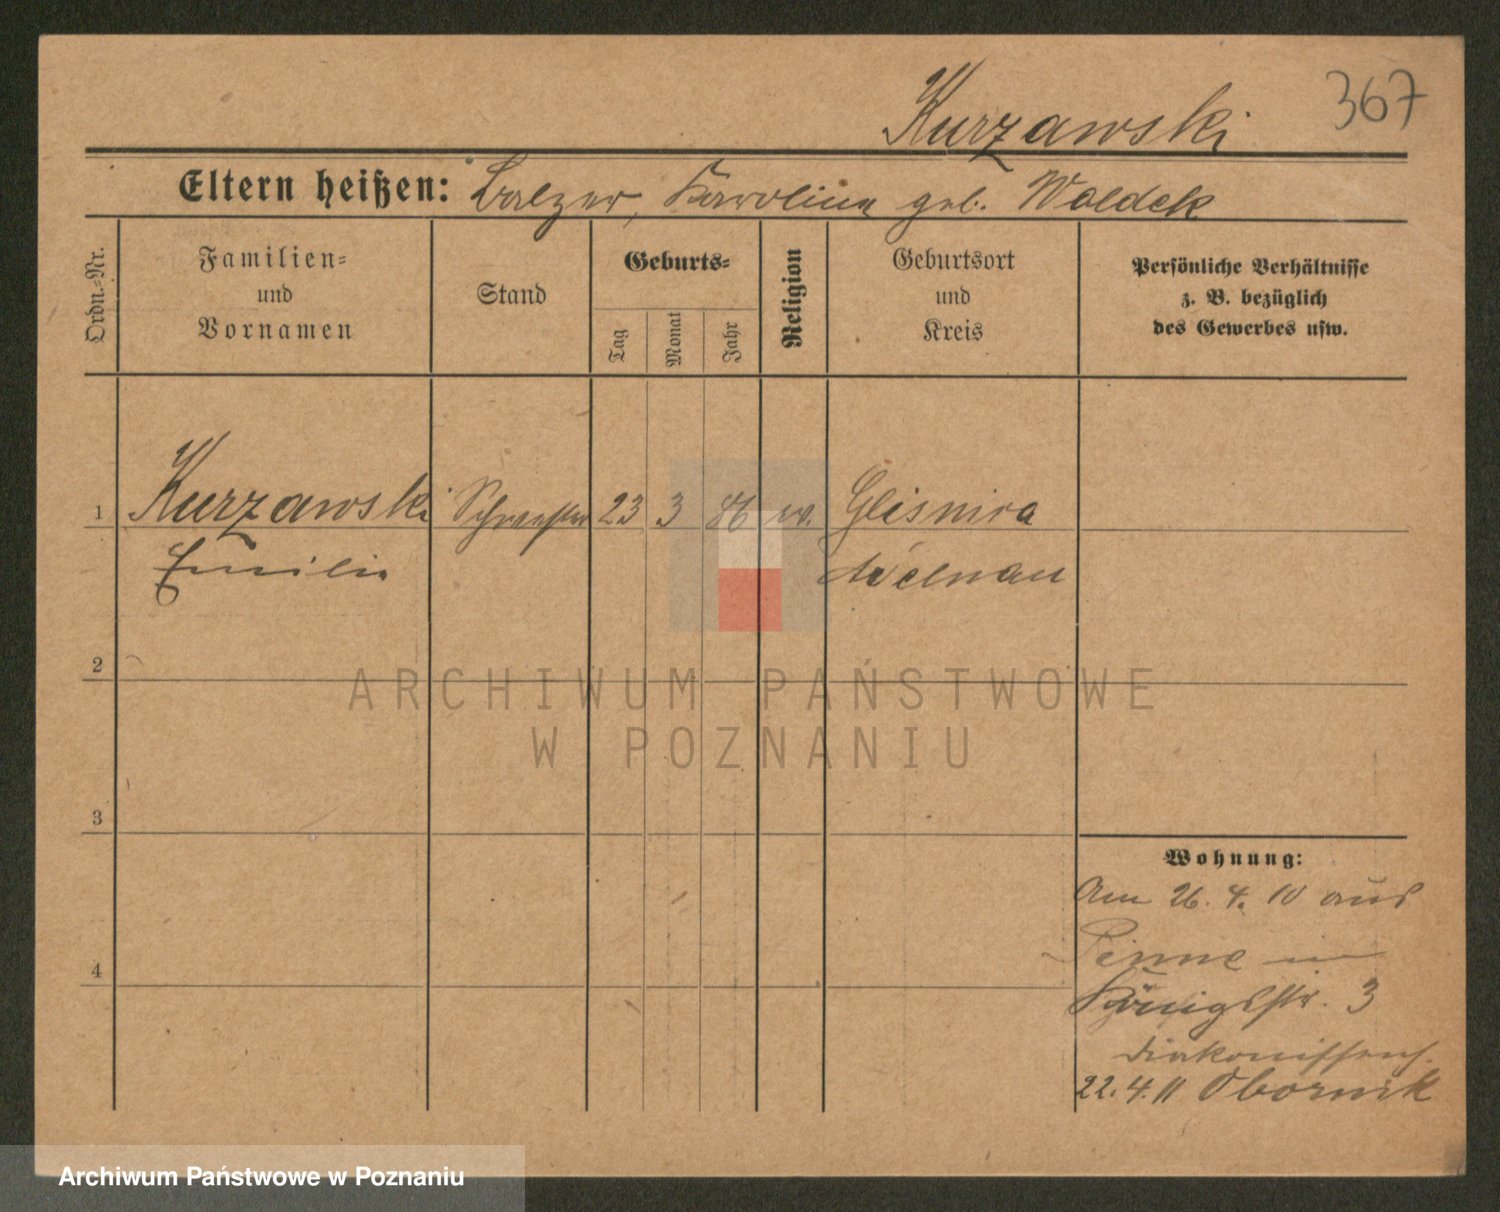 367
Kurzawski
Eltern heißen: Balzer, Karoline geb. Waldek
Ordn.-Nr.
Familien-
und
Vornamen
Stand
Geburts-
Tag
Monat
Jahr
Religion
Geburtsort
und
Kreis
Persönliche Verhältnisse
z. B. bezüglich
des Gewerbes usw.
1 Kurzawski Schwester 23 3 86 ev. Glisnica
Emilie Adelnau
2
3
4
Wohnung:
Am 26. 4. 10 aus
Pinne in
Königsstr. 3
Diakonissenh.
22. 4. 11 Obornik
ARCHIWUM PAŃSTWOWE
W POZNANIU
Archiwum Państwowe w Poznaniu